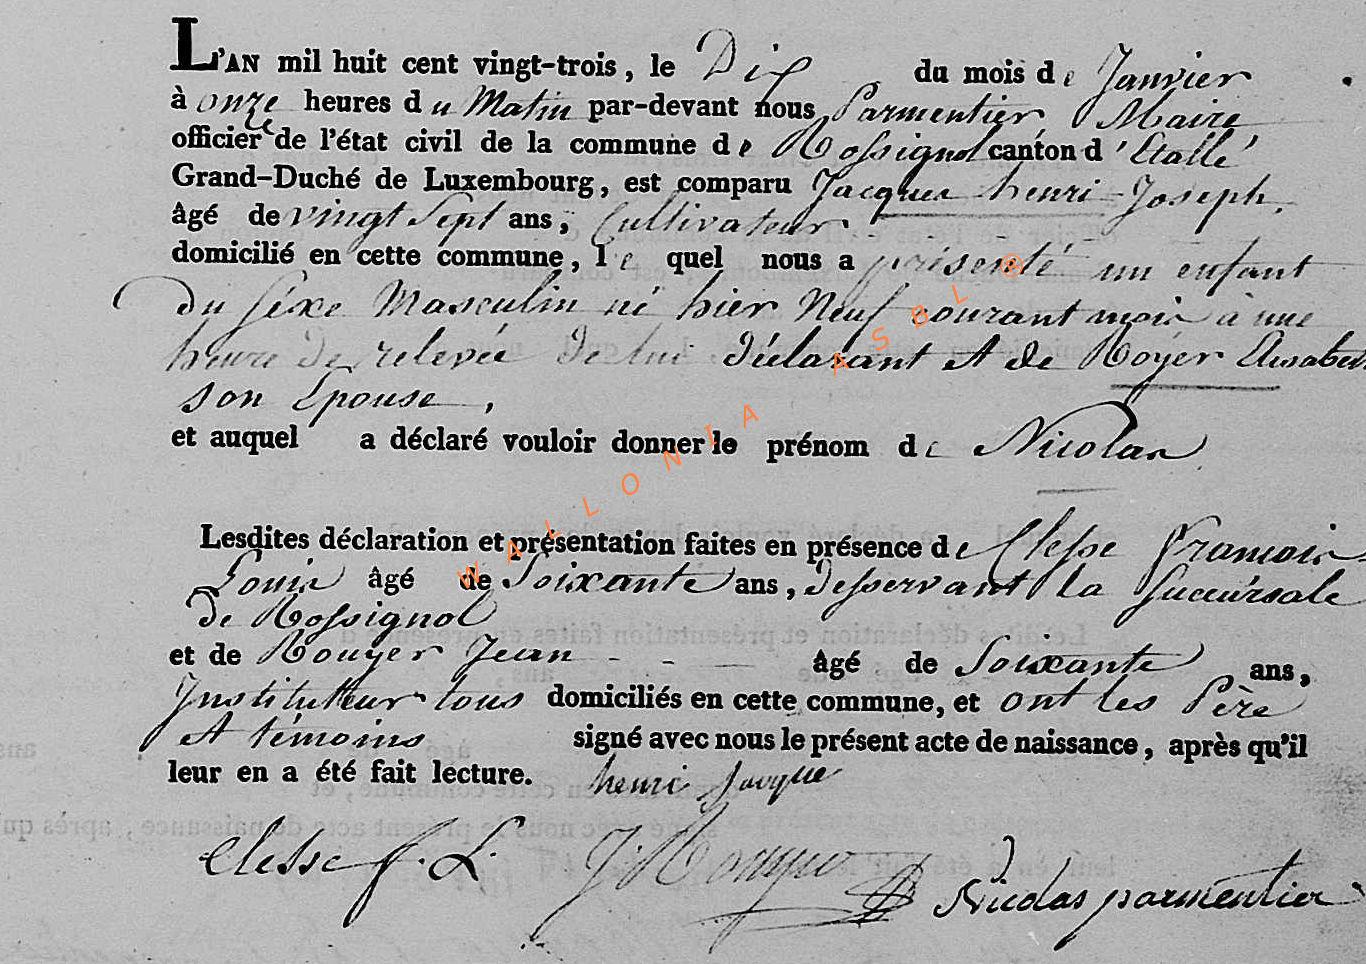 L'AN mil huit cent vingt-trois, le Dix du mois de Janvier
à onze heures du Matin par-devant nous Parmentier Maire
officier de l'état civil de la commune de Rossignol canton d'Etalle
Grand-Duché de Luxembourg, est comparu Jacques henri Joseph,
âgé de vingt Sept ans, Cultivateur
domicilié en cette commune, le quel nous a présenté un enfant
du sexe Masculin né hier Neuf courant mois à une
heure de relevée de lui déclarant et de Royer Elisabeth
son Epouse,
et auquel a déclaré vouloir donner le prénom de Nicolas
Lesdites déclaration et présentation faites en présence de Clesse François
Louis âgé de Soixante ans, desservant la Succursale
de Rossignol
et de Rouyer Jean - - - âgé de Soixante ans,
Instituteur tous domiciliés en cette commune, et ont les Père
et témoins signé avec nous le présent acte de naissance, après qu'il
leur en a été fait lecture. henri Jacque
Clesse f. L. J. Rouyer Nicolas parmentier
WALLONIA ASBL ®